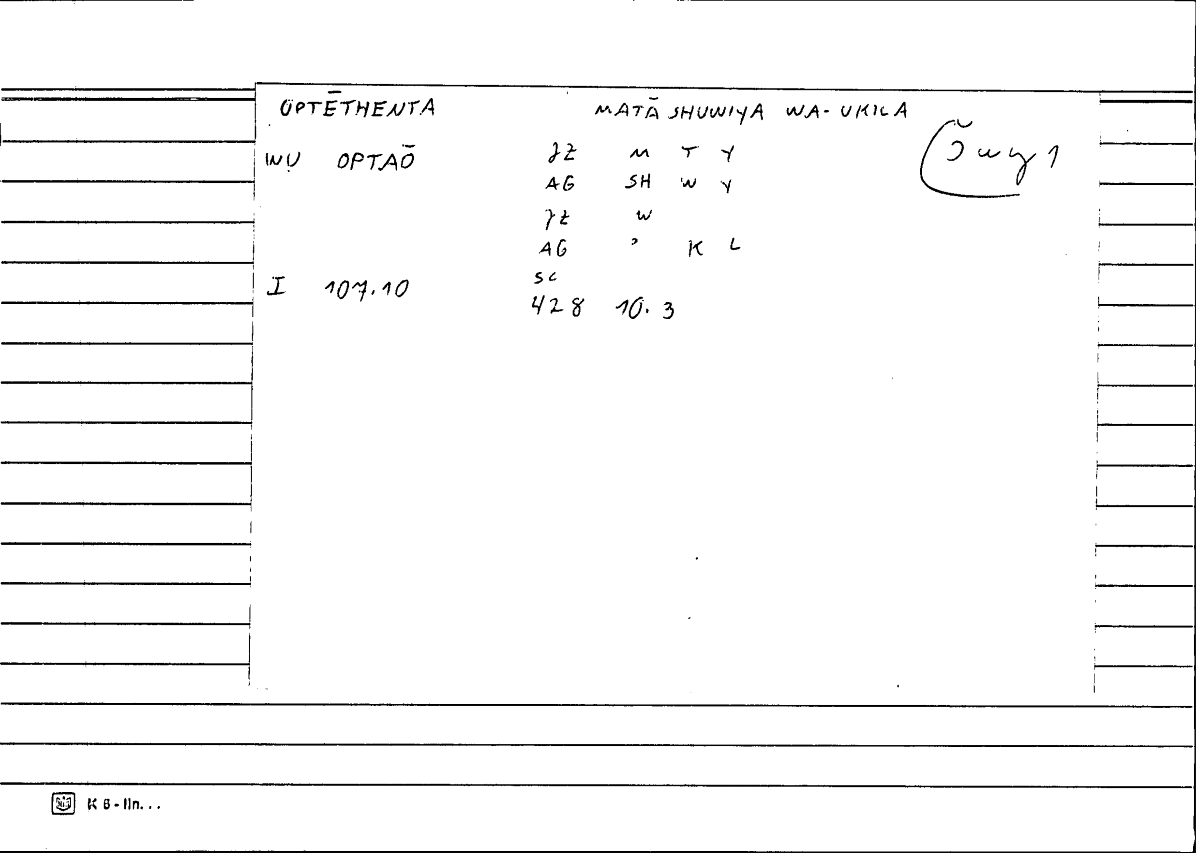 OPTĒTHENTA MATĀ SHUWIYA WA-UKILA
WỤ OPTAŌ ƷZ M T Y
AG SH W Y
ƷZ W
AG ʾ K L
I 107.10 SC
428 10.3
K 6 - lin...